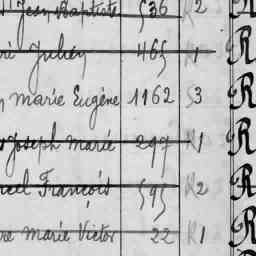 Jean Baptiste 536 2 R
Julien 465 1 R
marie Eugène 1162 3 R
Joseph marie 297 1 R
François 595 2 R
marie Victor 22 1 R